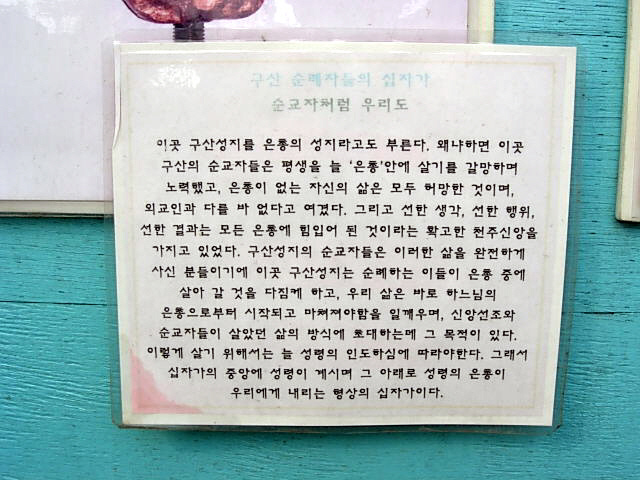 구산 순례자들의 십자가
순교자처럼 우리도
이곳 구산성지를 은총의 성지라고도 부른다. 왜냐하면 이곳
구산의 순교자들은 평생을 늘 '은총'안에 살기를 갈망하며
노력했고, 은총이 없는 자신의 삶은 모두 허망한 것이며,
외교인과 다를 바 없다고 여겼다. 그리고 선한 생각, 선한 행위,
선한 결과는 모든 은총에 힘입어 된 것이라는 확고한 천주신앙을
가지고 있었다. 구산성지의 순교자들은 이러한 삶을 완전하게
사신 분들이기에 이곳 구산성지는 순례하는 이들이 은총 중에
살아 갈 것을 다짐케 하고, 우리 삶은 바로 하느님의
은총으로부터 시작되고 마쳐져야함을 일깨우며, 신앙선조와
순교자들이 살았던 삶의 방식에 초대하는데 그 목적이 있다.
이렇게 살기 위해서는 늘 성령의 인도하심에 따라야한다. 그래서
십자가의 중앙에 성령이 계시며 그 아래로 성령의 은총이
우리에게 내리는 형상의 십자가이다.